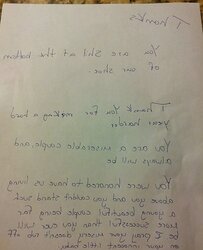 Thanks
You are Shit at the bottom
of our shoe.
Thank You for making a hard
year harder
You are a miserable couple and
always will be
You were honored to have us living
above you and you couldn't stand such
a young beautiful couple being far
more successful than you ever will
be I pray your misery doesn't rub off
on your innocent little baby